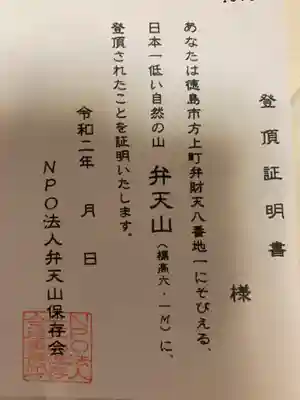 登頂証明書
様
あなたは徳島市方上町弁財天八番地一にそびえる、
日本一低い自然の山 弁天山(標高六・一M)に、
登頂されたことを証明いたします。
令和二年 月 日
NPO法人弁天山保存会